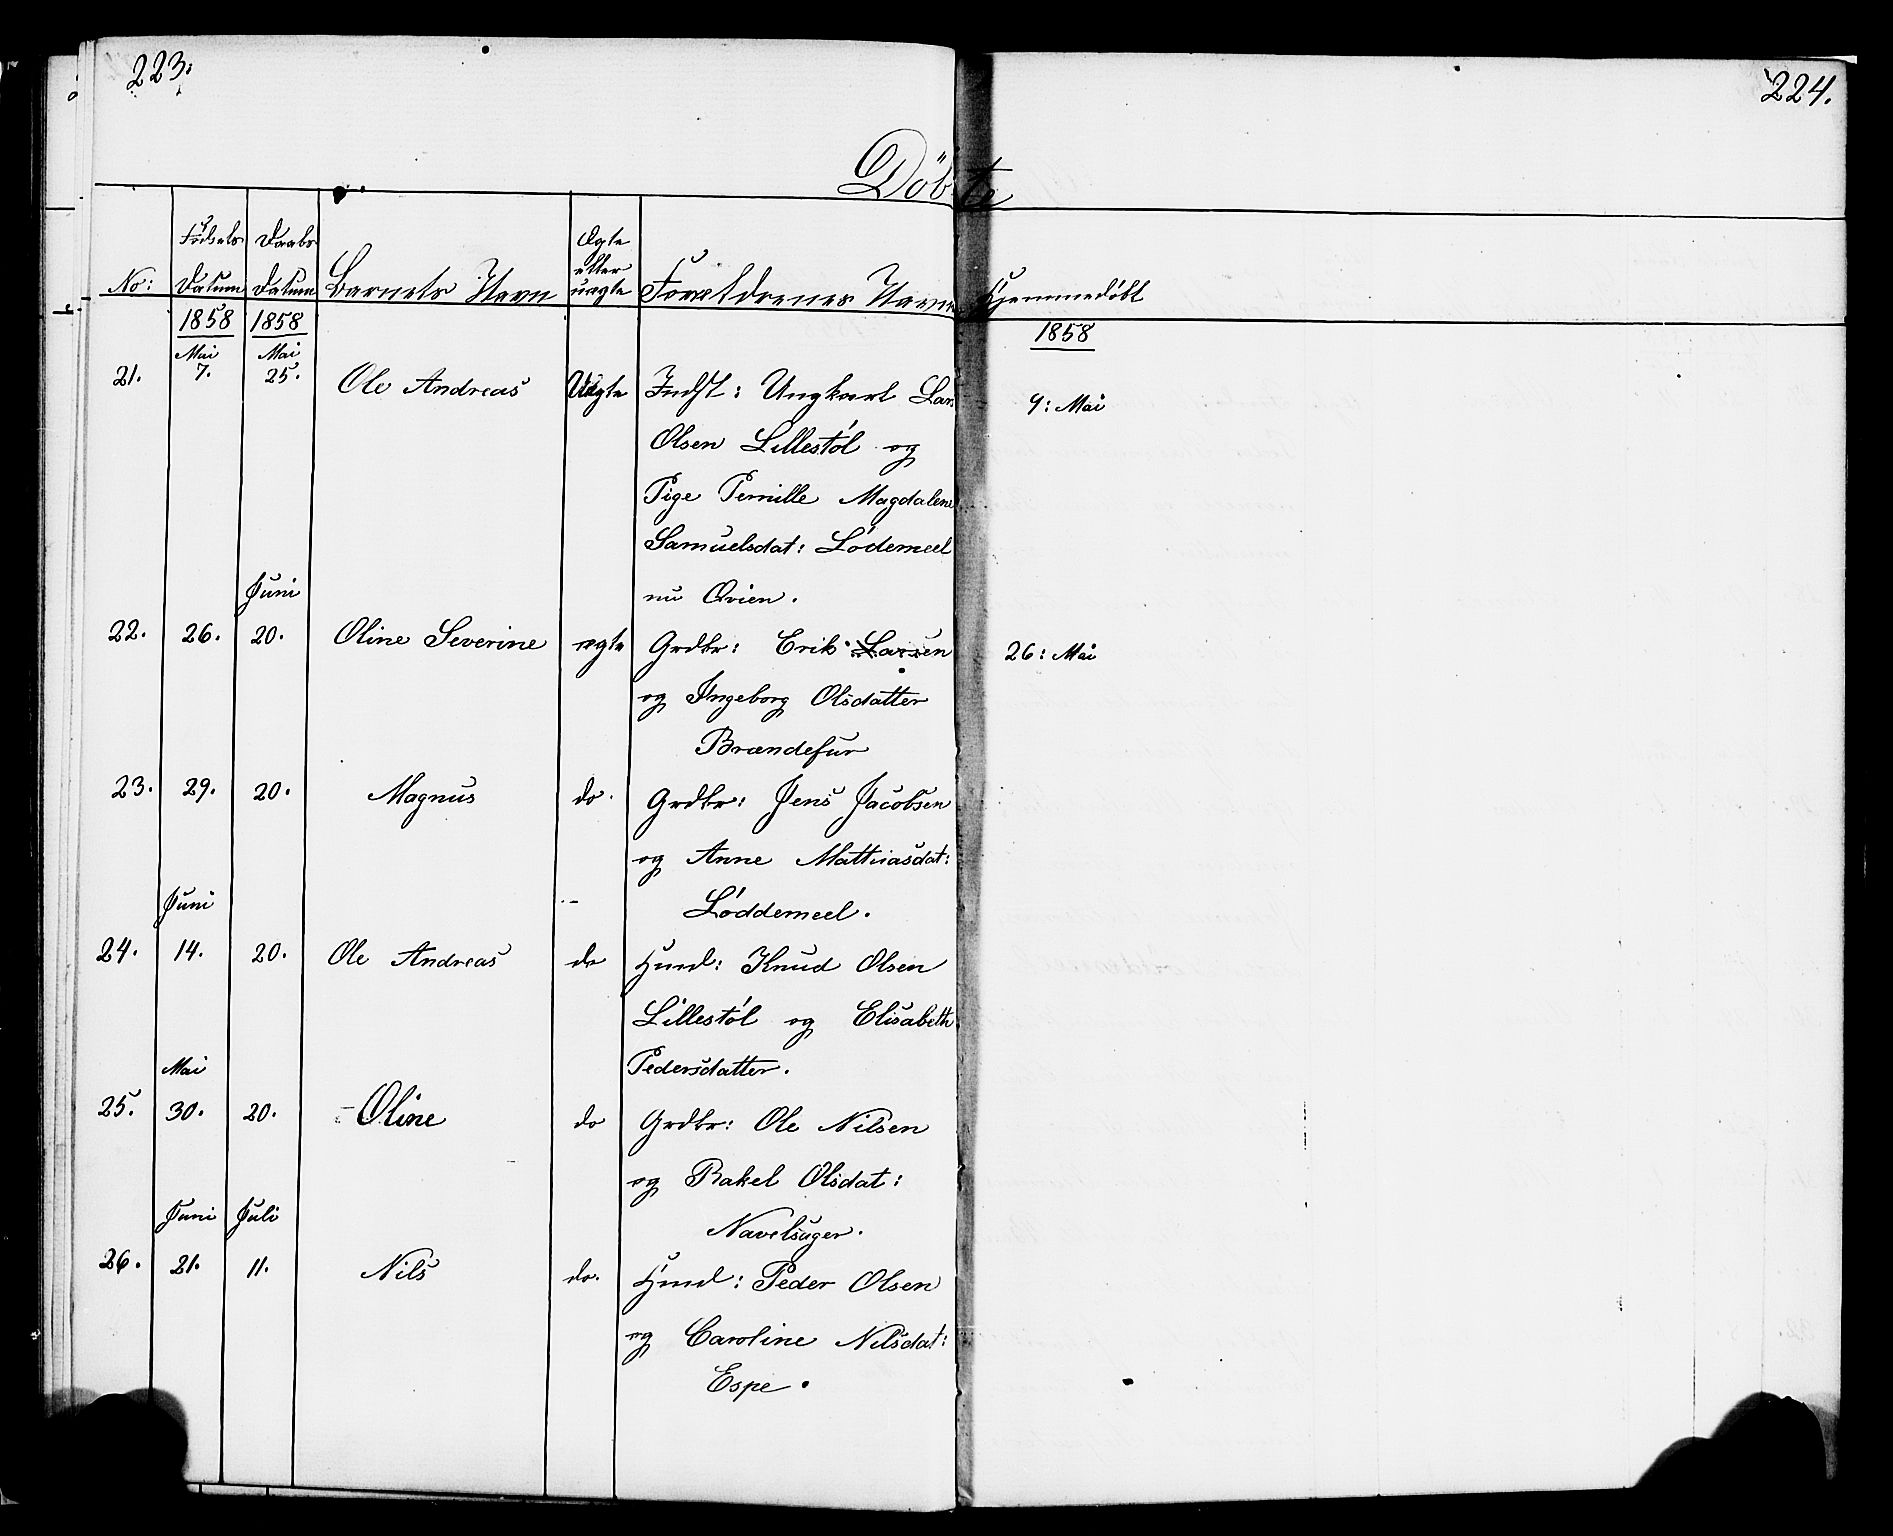 223.
224.
Döbte
No: Fødsels Datum Daabs Datum Barnets Navn Ægte eller uægte Forældrenes Navne Hjemmedöbt
1858 1858 1858
Mai Mai
21. 7. 25. Ole Andreas Uægte Indst: Ungkarl Lars 9: Mai
Olsen Lillestöl og
Pige Pernille Magdalene
Samuelsdat: Lödemeel
Juni nu Qvien.
22. 26. 20. Oline Severine ægte Grdbr: Erik Larsen 26: Mai
og Ingeborg Olsdatter
Brændefur
23. 29. 20. Magnus do. Grdbr: Jens Jacobsen
og Anne Mathiasdat:
Juni Løddemeel.
24. 14. 20. Ole Andreas do Huusm: Knud Olsen
Lillestöl og Elisabeth
Mai Pedersdatter.
25. 30. 20. Oline do Grdbr: Ole Nilsen
og Rakel Olsdat:
Juni Juli Navelsager.
26. 21. 11. Nils do. Huusm: Peder Olsen
og Caroline Nilsdat:
Espe.